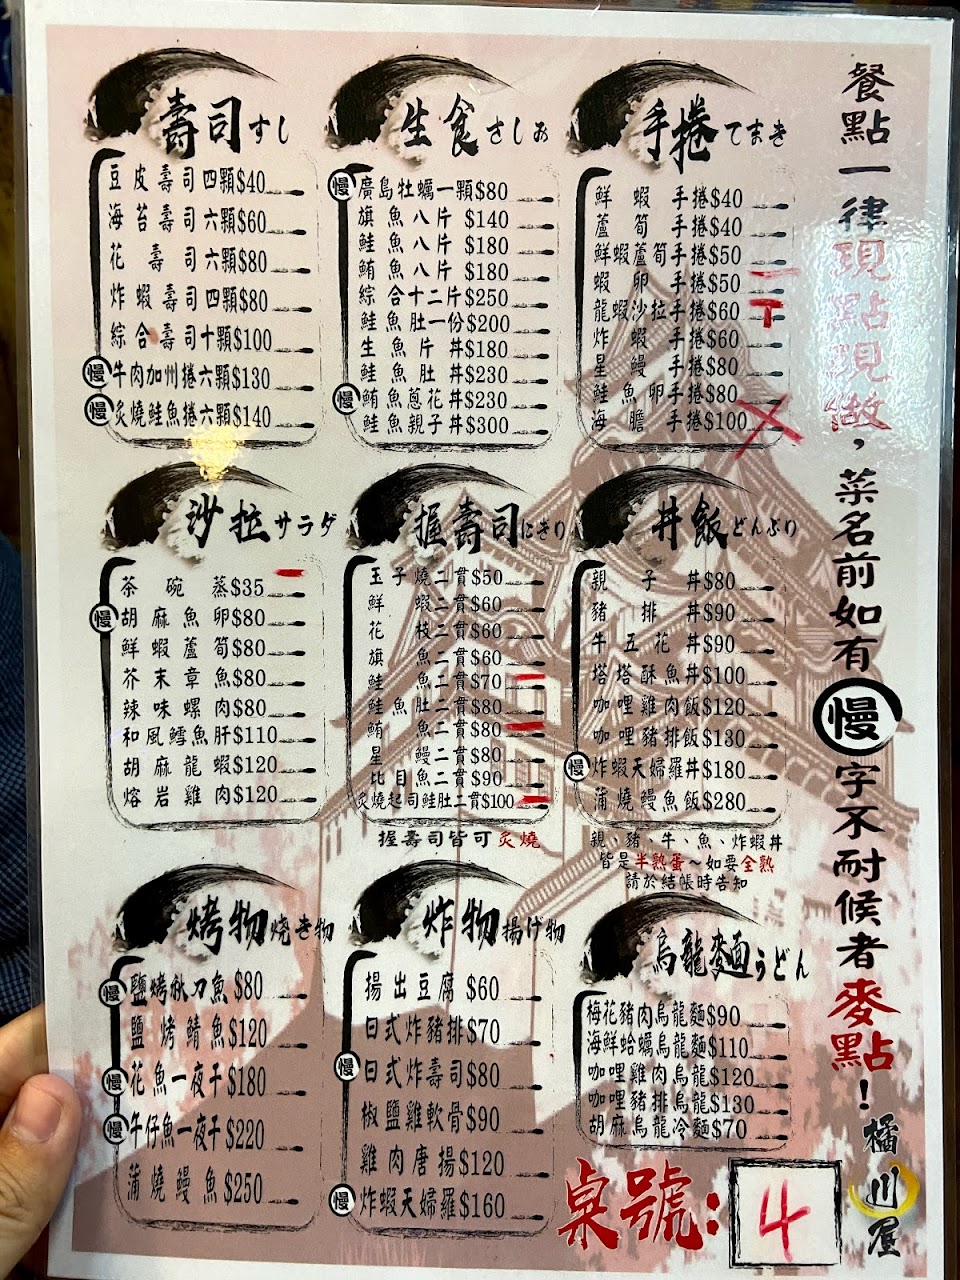 壽司すし
豆皮壽司四顆$40
海苔壽司六顆$60
花壽司六顆$80
炸蝦壽司四顆$80
綜合壽司十顆$100
慢 牛肉加州捲六顆$130
慢 炙燒鮭魚捲六顆$140
生食さしみ
慢 廣島牡蠣一顆$80
旗魚八片 $140
鮭魚八片 $180
鮪魚八片 $180
綜合十二片$250
鮭魚肚一份$200
生魚片丼$180
鮭魚肚丼$230
慢 鮪魚蔥花丼$230
鮭魚親子丼$300
手捲てまき
鮮蝦手捲$40
蘆筍手捲$40
鮮蝦蘆筍手捲$50
蝦卵手捲$50
龍蝦沙拉手捲$60
炸蝦手捲$60
星鰻手捲$80
鮭魚卵手捲$80
海膽手捲$100
沙拉サラダ
茶碗蒸$35
慢 胡麻魚卵$80
鮮蝦蘆筍$80
芥末章魚$80
辣味螺肉$80
和風鱈魚肝$110
胡麻龍蝦$120
熔岩雞肉$120
握壽司にぎり
玉子燒二貫$50
鮮蝦二貫$60
花枝二貫$60
旗魚二貫$60
鮭魚二貫$70
鮭魚肚二貫$80
鮪魚二貫$80
星鰻二貫$80
比目魚二貫$90
炙燒起司鮭肚二貫$100
握壽司皆可炙燒
丼飯どんぶり
親子丼$80
豬排丼$90
牛五花丼$90
塔塔酥魚丼$100
咖哩雞肉飯$120
咖哩豬排飯$130
慢 炸蝦天婦羅丼$180
蒲燒鰻魚飯$280
親、豬、牛、魚、炸蝦丼
皆是半熟蛋～如要全熟
請於結帳時告知
烤物燒き物
慢 鹽烤秋刀魚$80
鹽烤鯖魚$120
慢 花魚一夜干$180
慢 午仔魚一夜干$220
蒲燒鰻魚$250
炸物揚げ物
揚出豆腐 $60
日式炸豬排$70
慢 日式炸壽司$80
椒鹽雞軟骨$90
雞肉唐揚$120
慢 炸蝦天婦羅$160
烏龍麵うどん
梅花豬肉烏龍麵$90
海鮮蛤蠣烏龍麵$110
咖哩雞肉烏龍$120
咖哩豬排烏龍$130
胡麻烏龍冷麵$70
桌號：4
餐點一律現點現做，菜名前如有慢字不耐候者麥點！
橘川屋